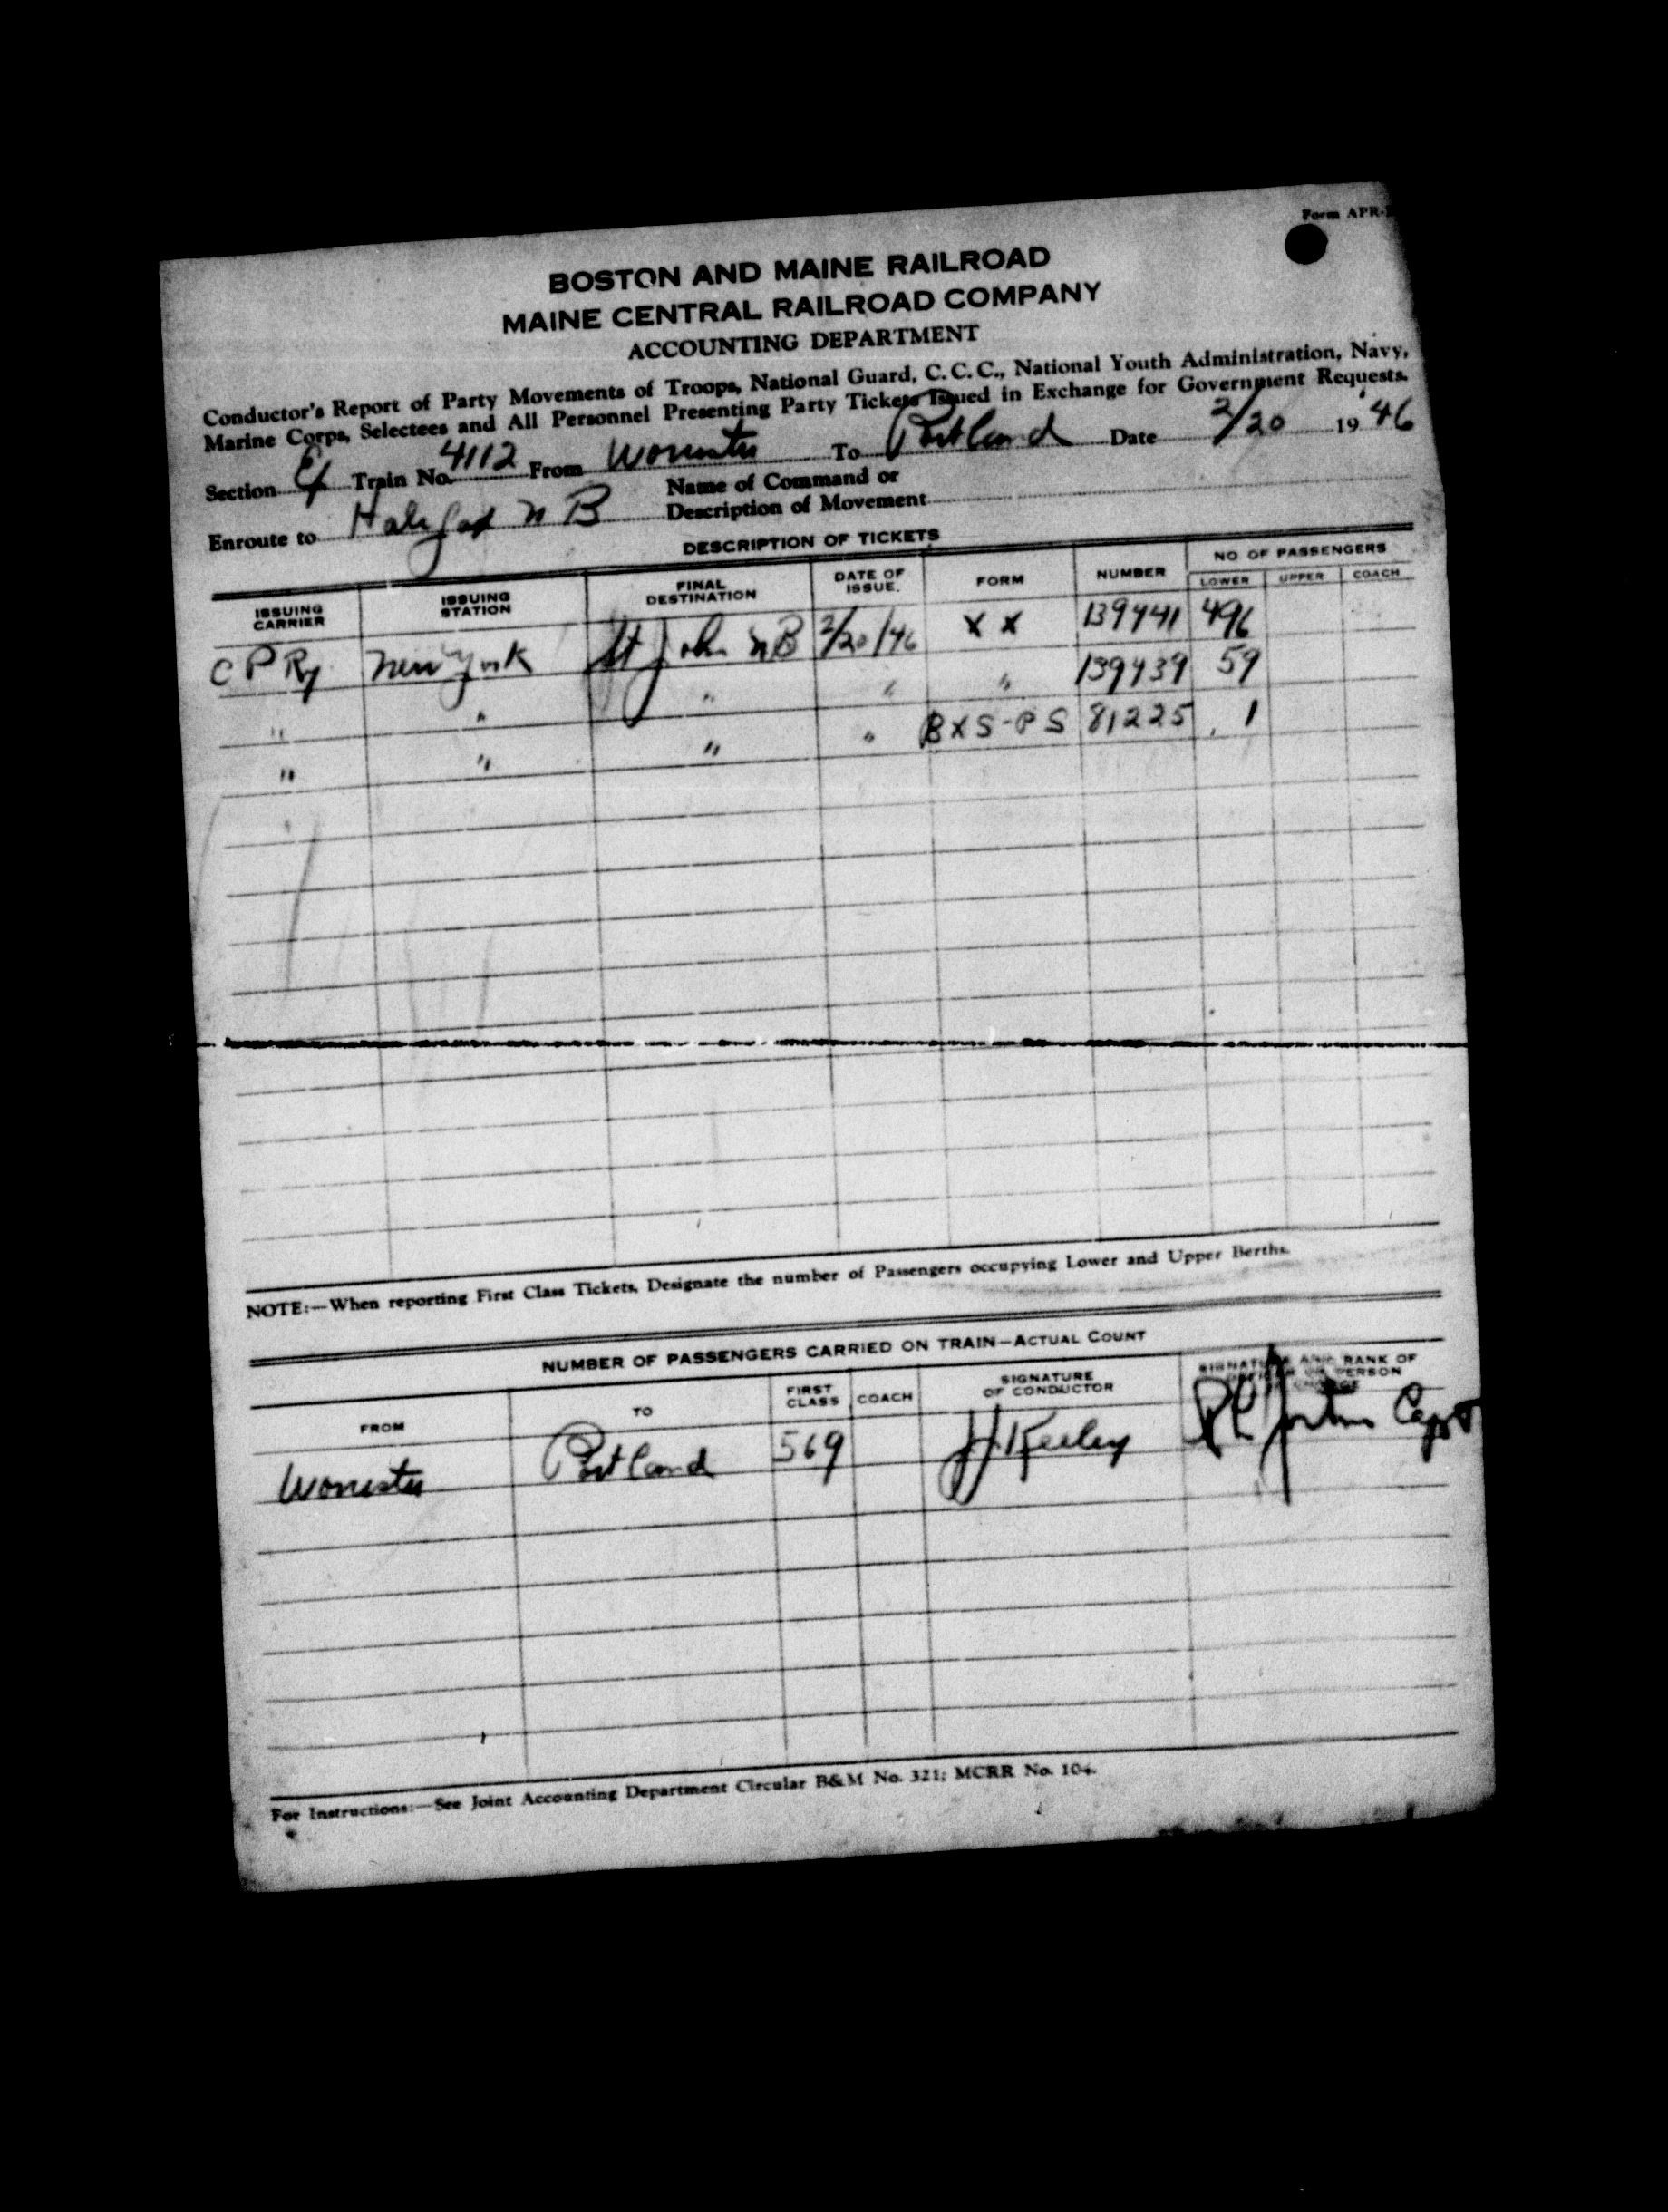 Form APR-
BOSTON AND MAINE RAILROAD
MAINE CENTRAL RAILROAD COMPANY
ACCOUNTING DEPARTMENT
Conductor's Report of Party Movements of Troops, National Guard, C. C. C., National Youth Administration, Navy,
Marine Corps, Selectees and All Personnel Presenting Party Tickets Issued in Exchange for Government Requests.
Section Train No. 4112 From Worcester To Portland Date 2/20 1946
Enroute to Halifax N B Name of Command or
Description of Movement
DESCRIPTION OF TICKETS
ISSUING CARRIER ISSUING STATION FINAL DESTINATION DATE OF ISSUE. FORM NUMBER NO OF PASSENGERS
LOWER UPPER COACH
C P Ry New York St John N B 2/20/46 X X 139441 496
" " " " " 139439 59
" " " " BXS-PS 81225 1
NOTE:—When reporting First Class Tickets, Designate the number of Passengers occupying Lower and Upper Berths.
NUMBER OF PASSENGERS CARRIED ON TRAIN—ACTUAL COUNT
FROM TO FIRST CLASS COACH SIGNATURE OF CONDUCTOR SIGNATURE AND RANK OF OFFICER OR PERSON IN CHARGE
Worcester Portland 569 J J Keeley Capt
For Instructions:—See Joint Accounting Department Circular B&M No. 321; MCRR No. 104.